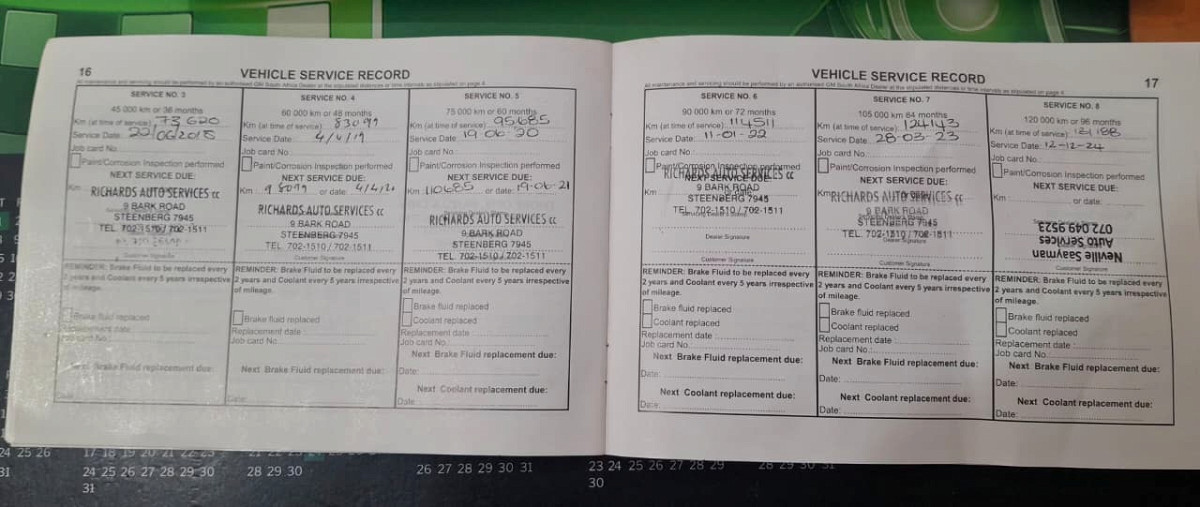 16
VEHICLE SERVICE RECORD
SERVICE NO. 3
45 000 km or 36 months
Km (at time of service) 73 620
Service Date: 22/06/2018
Job card No
Paint/Corrosion Inspection performed
NEXT SERVICE DUE:
Km
RICHARDS AUTO SERVICES cc
9 BARK ROAD
STEENBERG 7945
TEL. 702-1510 / 702-1511
Customer Signature
REMINDER: Brake Fluid to be replaced every
2 years and Coolant every 5 years irrespective
of mileage.
Brake fluid replaced
Replacement date
Job card No
Next Brake Fluid replacement due:
SERVICE NO. 4
60 000 km or 48 months
Km (at time of service) 83099
Service Date: 4/4/19
Job card No
Paint/Corrosion Inspection performed
NEXT SERVICE DUE:
Km 98099 or date:
RICHARDS AUTO SERVICES cc
9 BARK ROAD
STEENBERG 7945
TEL. 702-1510 / 702-1511
Customer Signature
REMINDER: Brake Fluid to be replaced every
2 years and Coolant every 5 years irrespective
of mileage.
Brake fluid replaced
Replacement date
Job card No
Next Brake Fluid replacement due:
Date:
SERVICE NO. 5
75 000 km or 60 months
Km (at time of service) 95685
Service Date: 19 06 20
Job card No
Paint/Corrosion Inspection performed
NEXT SERVICE DUE:
Km: 110685 or date: 19-06-21
RICHARDS AUTO SERVICES cc
9 BARK ROAD
STEENBERG 7945
TEL. 702-1510 / 702-1511
REMINDER: Brake Fluid to be replaced every
2 years and Coolant every 5 years irrespective
of mileage.
Brake fluid replaced
Coolant replaced
Replacement date
Job card No
Next Brake Fluid replacement due:
Date:
Next Coolant replacement due:
Date:
VEHICLE SERVICE RECORD
17
SERVICE NO. 6
90 000 km or 72 months
Km (at time of service) 114511
Service Date: 11-01-22
Job card No
Paint/Corrosion Inspection performed
NEXT SERVICE DUE:
Km
RICHARDS AUTO SERVICES cc
9 BARK ROAD
STEENBERG 7945
TEL. 702-1510 / 702-1511
Dealer Signature
Customer Signature
REMINDER: Brake Fluid to be replaced every
2 years and Coolant every 5 years irrespective
of mileage.
Brake fluid replaced
Coolant replaced
Replacement date
Job card No
Next Brake Fluid replacement due:
Date:
Next Coolant replacement due:
Date:
SERVICE NO. 7
105 000 km 84 months
Km (at time of service) 124143
Service Date: 28-03-23
Job card No
Paint/Corrosion Inspection performed
NEXT SERVICE DUE:
Km
RICHARDS AUTO SERVICES cc
9 BARK ROAD
STEENBERG 7945
TEL. 702-1510 / 702-1511
Dealer Signature
Customer Signature
REMINDER: Brake Fluid to be replaced every
2 years and Coolant every 5 years irrespective
of mileage.
Brake fluid replaced
Coolant replaced
Replacement date
Job card No
Next Brake Fluid replacement due:
Date:
Next Coolant replacement due:
Date:
SERVICE NO. 8
120 000 km or 96 months
Km (at time of service)
Service Date: 12-12-24
Job card No
Paint/Corrosion Inspection performed
NEXT SERVICE DUE:
Km or date:
Neville Saayman
Auto Services
072 049 9523
Customer Signature
REMINDER: Brake Fluid to be replaced every
2 years and Coolant every 5 years irrespective
of mileage.
Brake fluid replaced
Coolant replaced
Replacement date
Job card No
Next Brake Fluid replacement due:
Date:
Next Coolant replacement due:
Date:
24 25 26
31
17 18 19 20 21 22 23
24 25 26 27 28 29 30
31
28 29 30
26 27 28 29 30 31
23 24 25 26 27 28 29
30